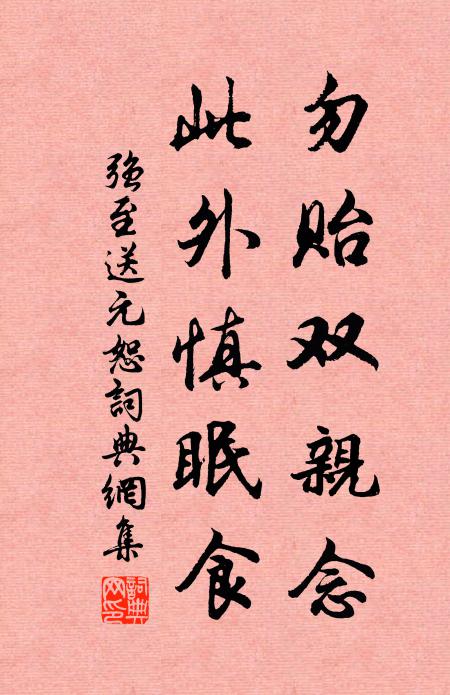 勿贻双親念
此外慎眠食
强至送元恕詞典網集
詞典
网印